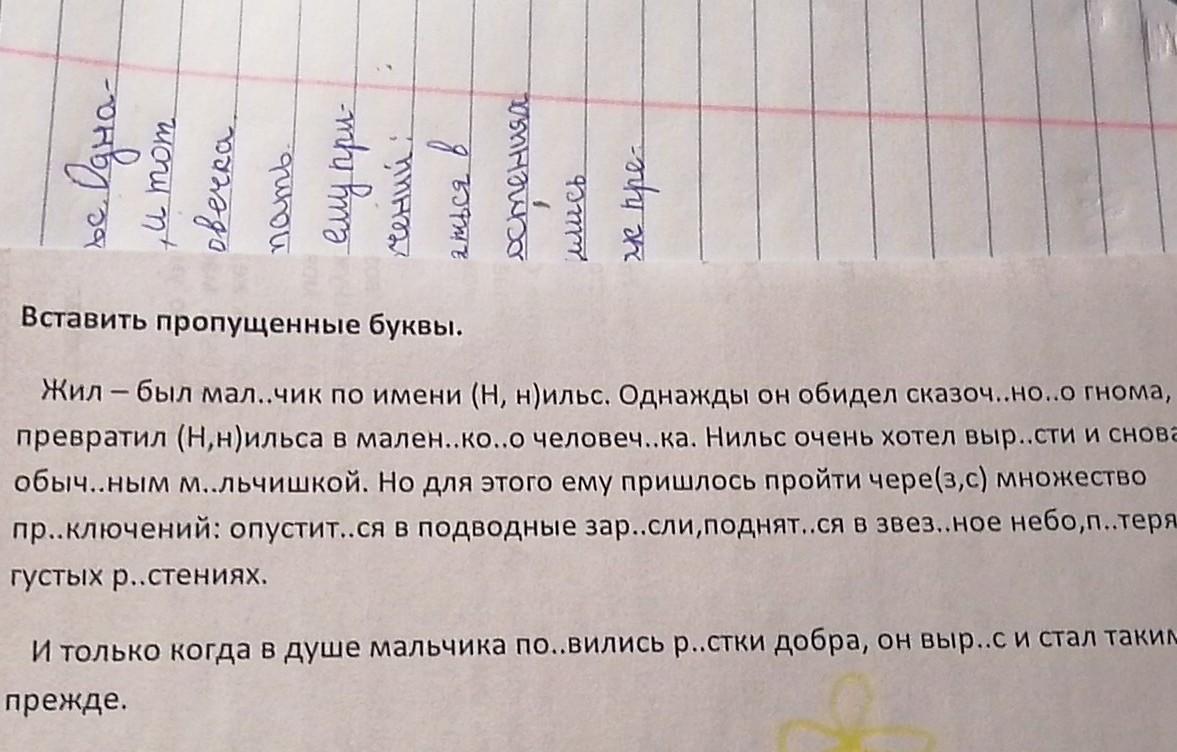 ьс. Одна-
и тот
овечка
пать.
ему при-
чений:
аться в
остениях
ились
ж пре-
Вставить пропущенные буквы.
Жил – был мал..чик по имени (Н, н)ильс. Однажды он обидел сказоч..но..о гнома,
превратил (Н,н)ильса в мален..ко..о человеч..ка. Нильс очень хотел выр..сти и снова
обыч..ным м..льчишкой. Но для этого ему пришлось пройти чере(з,с) множество
пр..ключений: опустит..ся в подводные зар..сли,поднят..ся в звез..ное небо,п..теря
густых р..стениях.
И только когда в душе мальчика по..вились р..стки добра, он выр..с и стал таким
прежде.